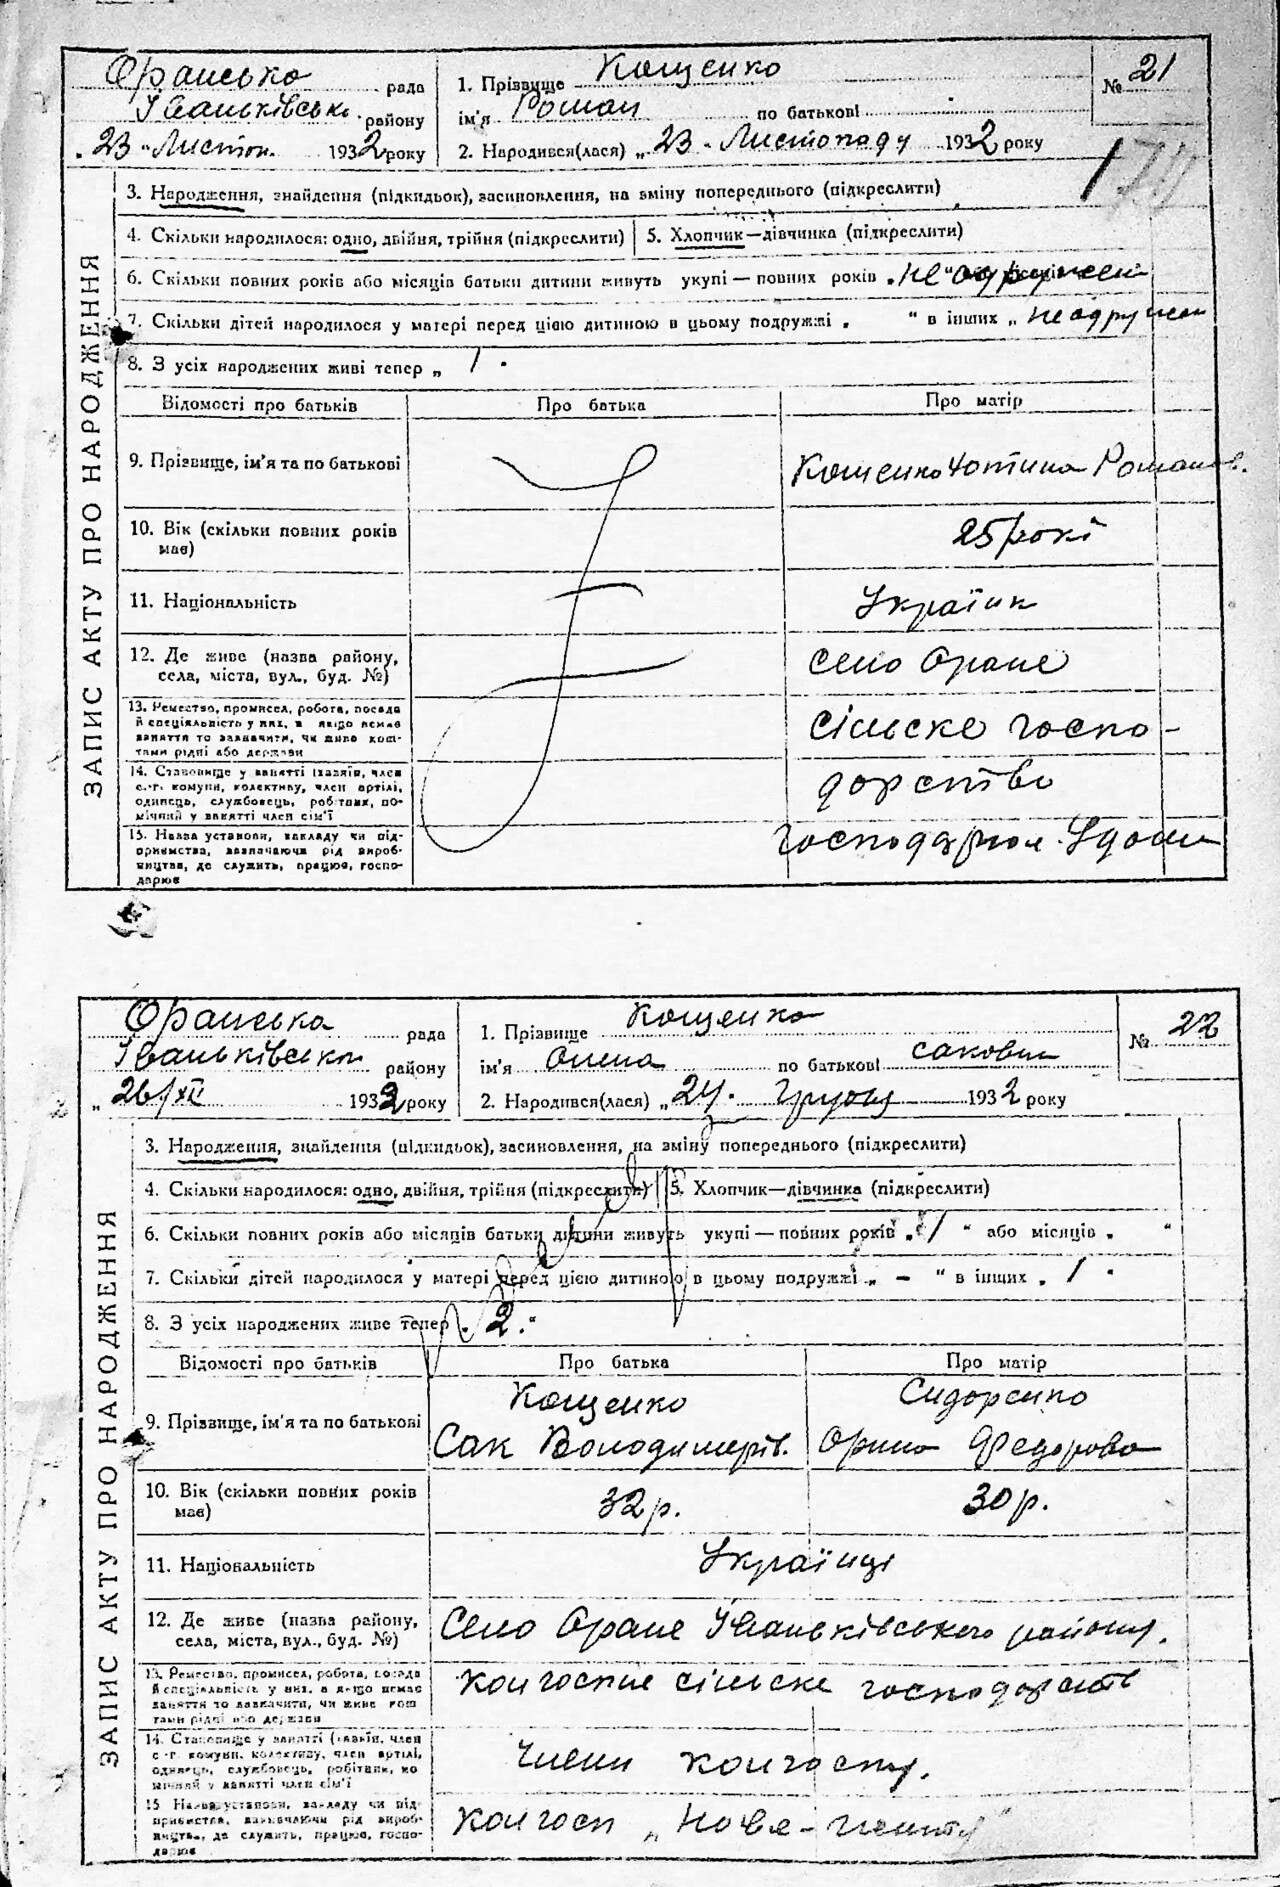 Оранська рада
Іваньківськ. району
„23 “ Листоп. 1932 року
1. Прізвище Кощенко
ім'я Роман по батькові
2. Народився(лася) „23 “ Листопаду 1932 року
№ 21
ЗАПИС АКТУ ПРО НАРОДЖЕННЯ
3. Народження, знайдення (підкидьок), засиновлення, на зміну попереднього (підкреслити)
4. Скільки народилося: одно, двійня, трійня (підкреслити) 5. Хлопчик—дівчинка (підкреслити)
6. Скільки повних років або місяців батьки дитини живуть укупі — повних років
7. Скільки дітей народилося у матері перед цією дитиною в цьому подружжі „ “ в інших „
8. З усіх народжених живі тепер „ 1 “
Відомості про батьків Про батька Про матір
9. Прізвище, ім'я та по батькові Кощенко Романов.
10. Вік (скільки повних років має) 25 рокі
11. Національність Українк
12. Де живе (назва району, села, міста, вул., буд. №) село Оране
13. Ремество, промисел, робота, посада й спеціяльність у них, а якщо немає заняття то зазначити, чи живе коштами рідні або держави сільске госпо-
14. Становище у занятті (хазяїн, член с.-г. комуни, колективу, член артілі, одинець, службовець, робітник, помічний у занятті член сім'ї дорство
15. Назва установи, закладу чи підприємства, зазначаючи рід виробництва, де служить, працює, господарює
Оранська рада
Іваньківська району
„ 26/XII 1932 року
1. Прізвище Кощенко
ім'я Олена по батькові саковна
2. Народився(лася) „24 “ Грудня 1932 року
№ 22
ЗАПИС АКТУ ПРО НАРОДЖЕННЯ
3. Народження, знайдення (підкидьок), засиновлення, на зміну попереднього (підкреслити)
4. Скільки народилося: одно, двійня, трійня (підкреслити) 5. Хлопчик—дівчинка (підкреслити)
6. Скільки повних років або місяців батьки дитини живуть укупі — повних років „ 1 “ або місяців „ “
7. Скільки дітей народилося у матері перед цією дитиною в цьому подружжі „ – “ в інших „ 1 “
8. З усіх народжених живе тепер „ 2. “
Відомості про батьків Про батька Про матір
9. Прізвище, ім'я та по батькові Кощенко Сак Володимерів. Сидоренко Орина Федорова
10. Вік (скільки повних років має) 32 р. 30 р.
11. Національність Українці
12. Де живе (назва району, села, міста, вул., буд. №) Село Оране Іваньківського району.
13. Ремество, промисел, робота, посада й спеціяльність у них, а якщо немає заняття то зазначити, чи живе коштами рідні або держави сільске господорств
14. Становище у занятті (хазяїн, член с.-г. комуни, колективу, член артілі, одинець, службовець, робітник, помічний у занятті член сім'ї члени колгоспу.
15 Назва установи, закладу чи підприємства, зазначаючи рід виробництва, де служить, працює, господарює колгосп „Нове-